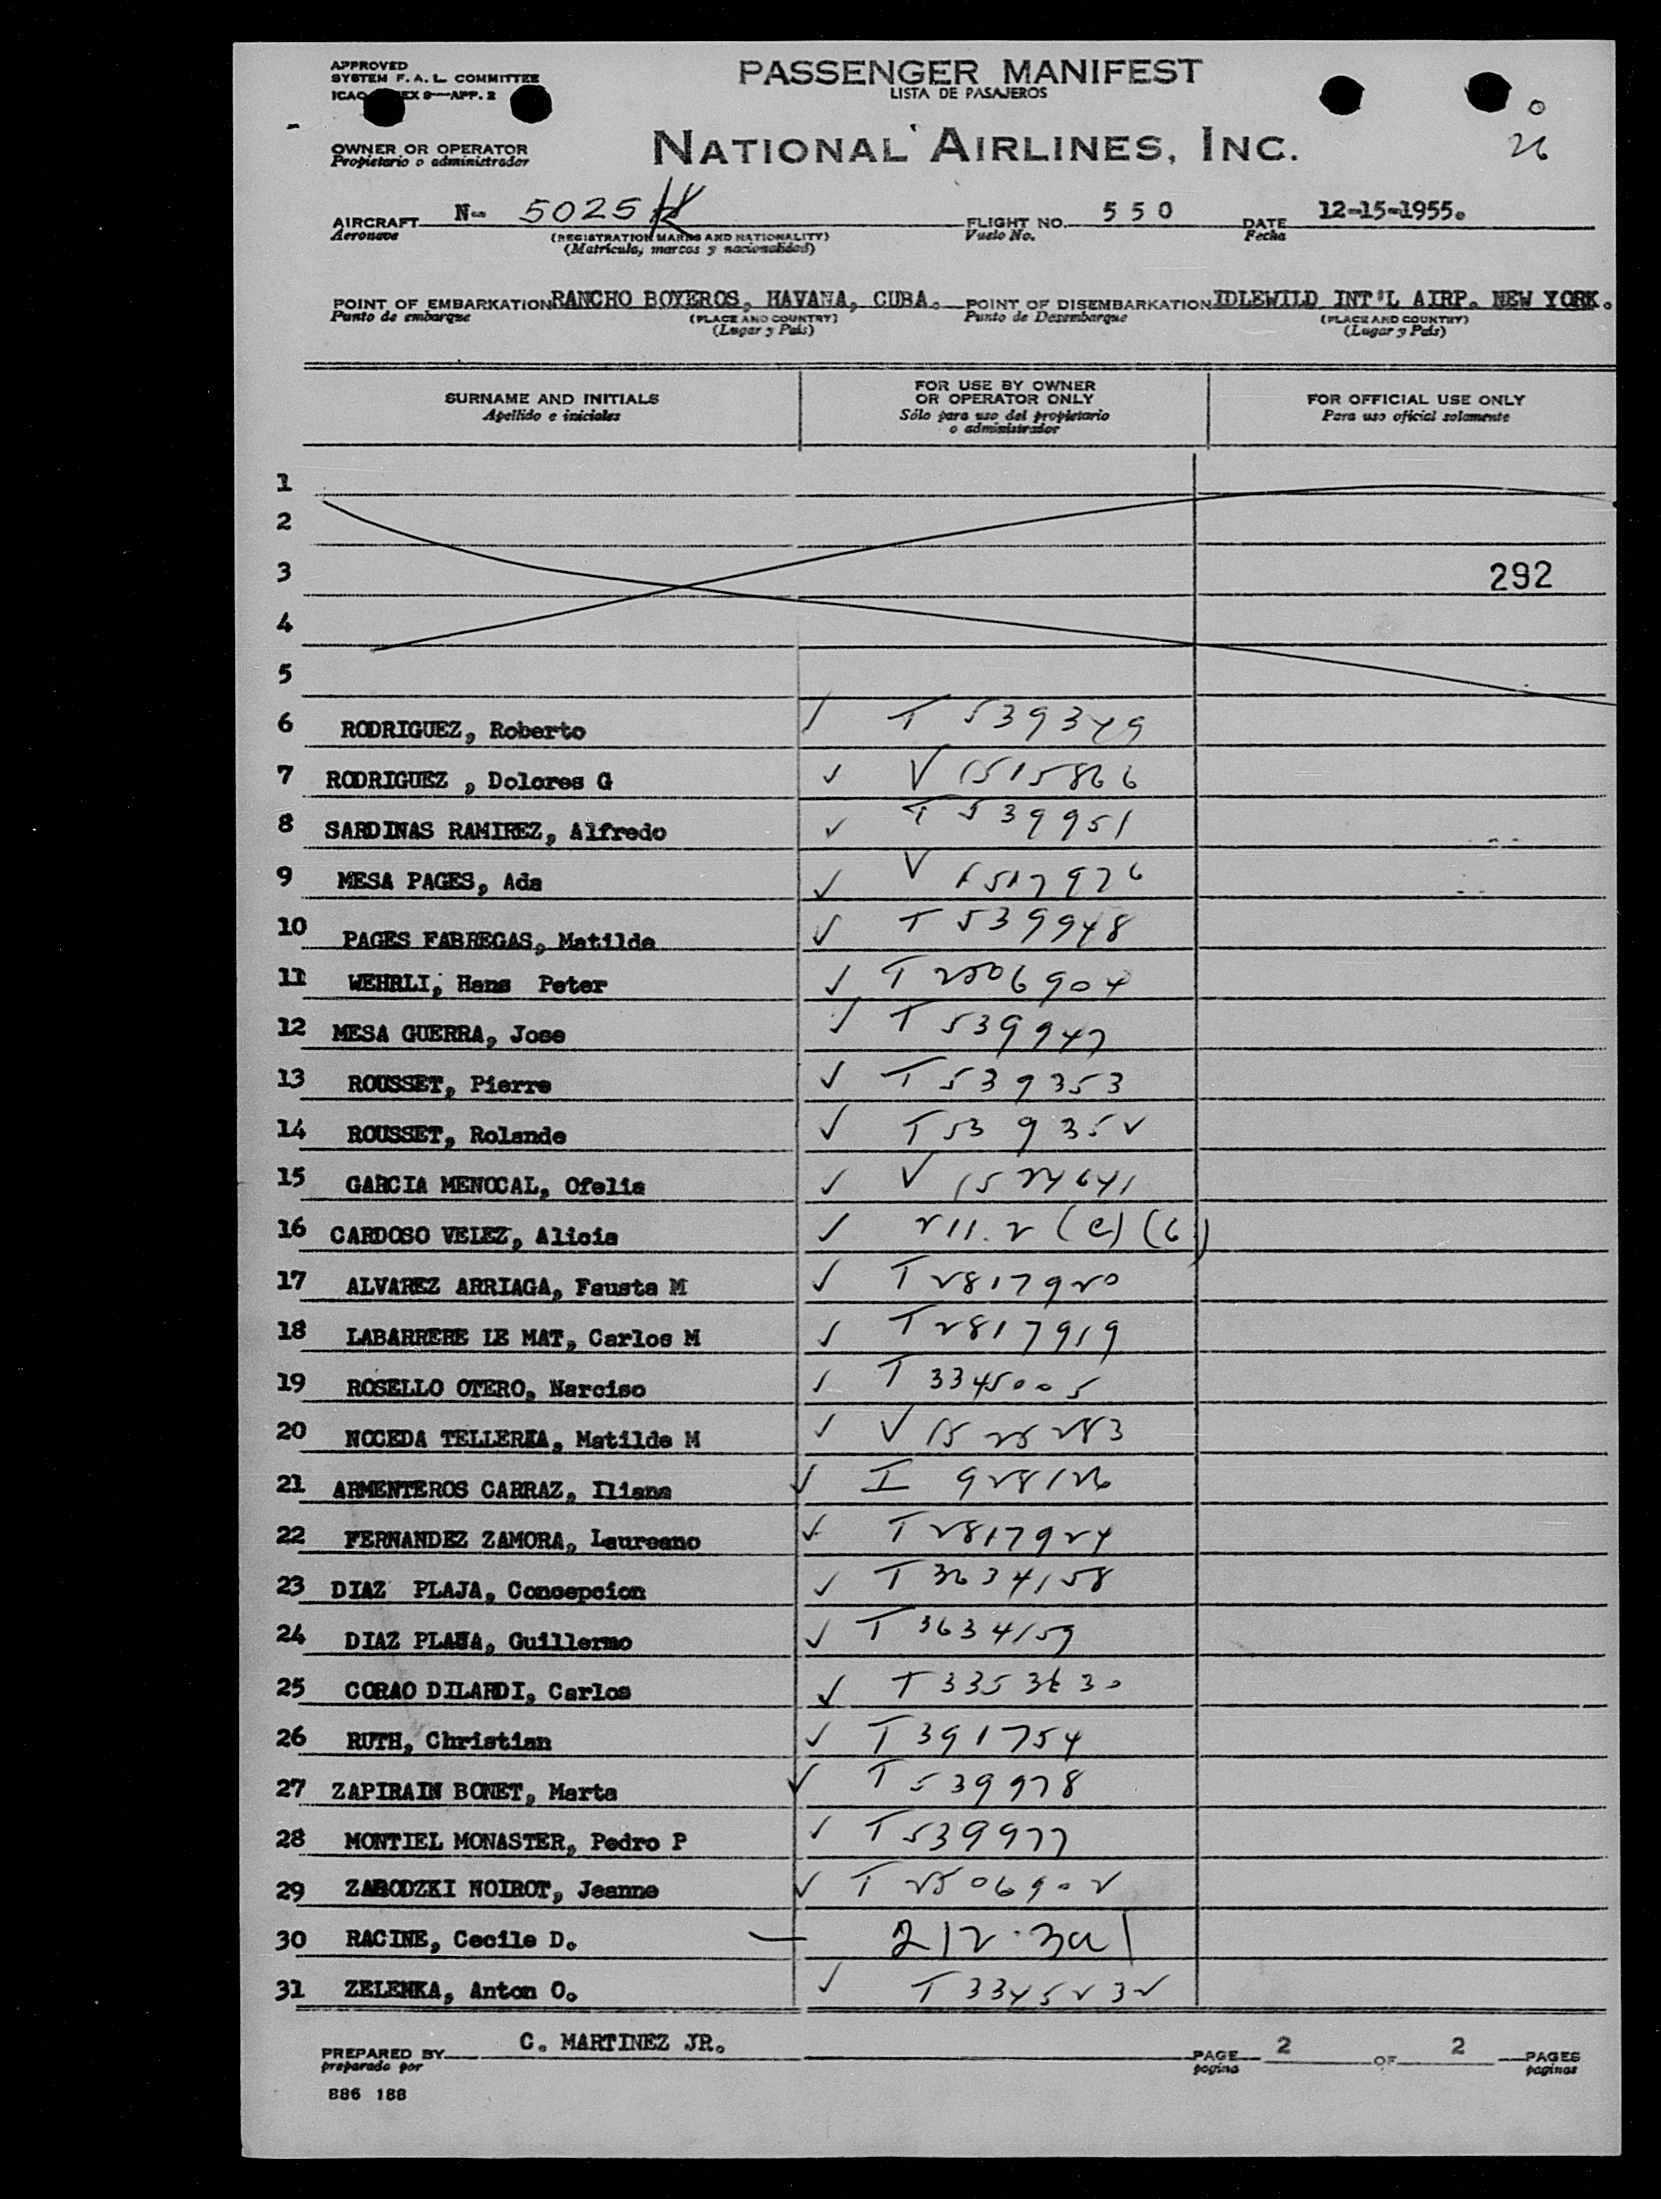 APPROVED
SYSTEM F. A. L. COMMITTEE
ICAO EX 9—APP. 2
PASSENGER MANIFEST
LISTA DE PASAJEROS
0
26
OWNER OR OPERATOR
Propietario o administrador
NATIONAL AIRLINES, INC.
AIRCRAFT N- 5025K FLIGHT NO. 5 5 0 DATE 12-15-1955.
Aeronave (REGISTRATION MARKS AND NATIONALITY) Vuelo No. Fecha
(Matrícula, marcas y nacionalidad)
POINT OF EMBARKATION RANCHO BOYEROS, HAVANA, CUBA. POINT OF DISEMBARKATION IDLEWILD INT'L AIRP. NEW YORK.
Punto de embarque (PLACE AND COUNTRY) Punto de Desembarque (PLACE AND COUNTRY)
(Lugar y País) (Lugar y País)
SURNAME AND INITIALS FOR USE BY OWNER OR OPERATOR ONLY FOR OFFICIAL USE ONLY
Apellido e iniciales Sólo para uso del propietario o administrador Para uso oficial solamente
1
2
3 292
4
5
6 RODRIGUEZ, Roberto ✓ T 539349
7 RODRIGUEZ , Dolores G ✓ V 1515866
8 SARDINAS RAMIREZ, Alfredo ✓ T 539951
9 MESA PAGES, Ada ✓ V 1517976
10 PAGES FABREGAS, Matilde ✓ T 539948
11 WEHRLI, Hans Peter ✓ T 2506904
12 MESA GUERRA, Jose ✓ T 539947
13 ROUSSET, Pierre ✓ T 539353
14 ROUSSET, Rolande ✓ T 539352
15 GARCIA MENOCAL, Ofelia ✓ V 1524641
16 CARDOSO VELEZ, Alicia ✓ 211.2 (e) (6)
17 ALVAREZ ARRIAGA, Fausta M ✓ T 2817920
18 LABARRERE LE MAT, Carlos M ✓ T 2817919
19 ROSELLO OTERO, Narciso ✓ T 3345005
20 NOCEDA TELLERIA, Matilde M ✓ V 1525283
21 ARMENTEROS CARRAZ, Iliana ✓ I 928126
22 FERNANDEZ ZAMORA, Laureano ✓ T 2817924
23 DIAZ PLAJA, Concepcion ✓ T 3634158
24 DIAZ PLAJA, Guillermo ✓ T 3634159
25 CORAO DILARDI, Carlos ✓ T 3353630
26 RUTH, Christian ✓ T 391754
27 ZAPIRAIN BONET, Marta ✓ T 539978
28 MONTIEL MONASTER, Pedro P ✓ T 539977
29 ZABODZKI NOIROT, Jeanne ✓ T 2506902
30 RACINE, Cecile D. — 212.3a1
31 ZELENKA, Anton O. ✓ T 3345232
PREPARED BY C. MARTINEZ JR. PAGE 2 OF 2 PAGES
preparado por pagina paginas
886 188